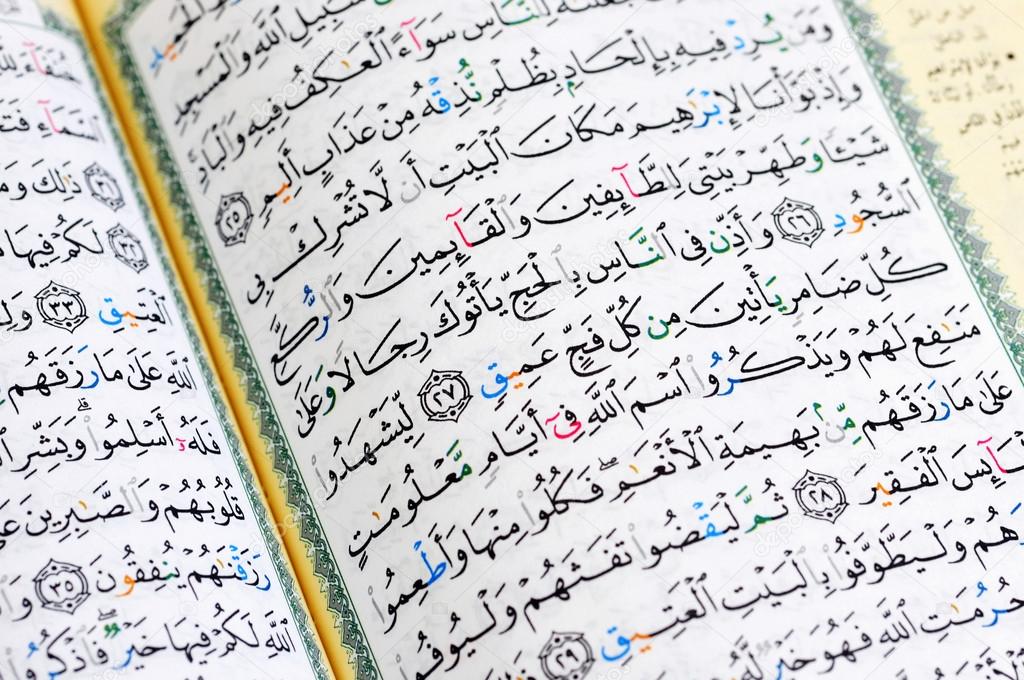 ٱلْحَمِيدِ
سَبِيلِ ٱللَّهِ وَٱلْمَسْجِدِ
لِلنَّاسِ سَوَآءً ٱلْعَـٰكِفُ فِيهِ وَٱلْبَادِ
وَمَن يُرِدْ فِيهِ بِإِلْحَادٍۭ بِظُلْمٍ نُّذِقْهُ مِنْ عَذَابٍ أَلِيمٍ ٢٥
وَإِذْ بَوَّأْنَا لِإِبْرَٰهِيمَ مَكَانَ ٱلْبَيْتِ أَن لَّا تُشْرِكْ بِى
شَيْـًٔا وَطَهِّرْ بَيْتِىَ لِلطَّآئِفِينَ وَٱلْقَآئِمِينَ وَٱلرُّكَّعِ
ٱلسُّجُودِ ٢٦ وَأَذِّن فِى ٱلنَّاسِ بِٱلْحَجِّ يَأْتُوكَ رِجَالًا وَعَلَىٰ
كُلِّ ضَامِرٍ يَأْتِينَ مِن كُلِّ فَجٍّ عَمِيقٍ ٢٧ لِّيَشْهَدُوا۟
مَنَـٰفِعَ لَهُمْ وَيَذْكُرُوا۟ ٱسْمَ ٱللَّهِ فِىٓ أَيَّامٍ مَّعْلُومَـٰتٍ
عَلَىٰ مَا رَزَقَهُم مِّنۢ بَهِيمَةِ ٱلْأَنْعَـٰمِ ۖ فَكُلُوا۟ مِنْهَا وَأَطْعِمُوا۟
ٱلْفَقِيرَ ٢٨ ثُمَّ لْيَقْضُوا۟ تَفَثَهُمْ وَلْيُوفُوا۟
وَلْيَطَّوَّفُوا۟ بِٱلْبَيْتِ ٱلْعَتِيقِ ٢٩
حُرُمَـٰتِ ٱللَّهِ فَهُوَ خَيْرٌ لَّهُۥ
ٱلسَّمَآءِ
٣١ ذَٰلِكَ
٣٢ لَكُمْ فِيهَا
ٱلْعَتِيقِ ٣٣
ٱللَّهِ عَلَىٰ مَا رَزَقَهُم
فَلَهُۥٓ أَسْلِمُوا۟ ۗ وَبَشِّرِ
قُلُوبُهُمْ وَٱلصَّـٰبِرِينَ
رَزَقْنَـٰهُمْ يُنفِقُونَ ٣٥
ٱللَّهِ لَكُمْ فِيهَا خَيْرٌ ۖ فَٱذْكُرُوا۟